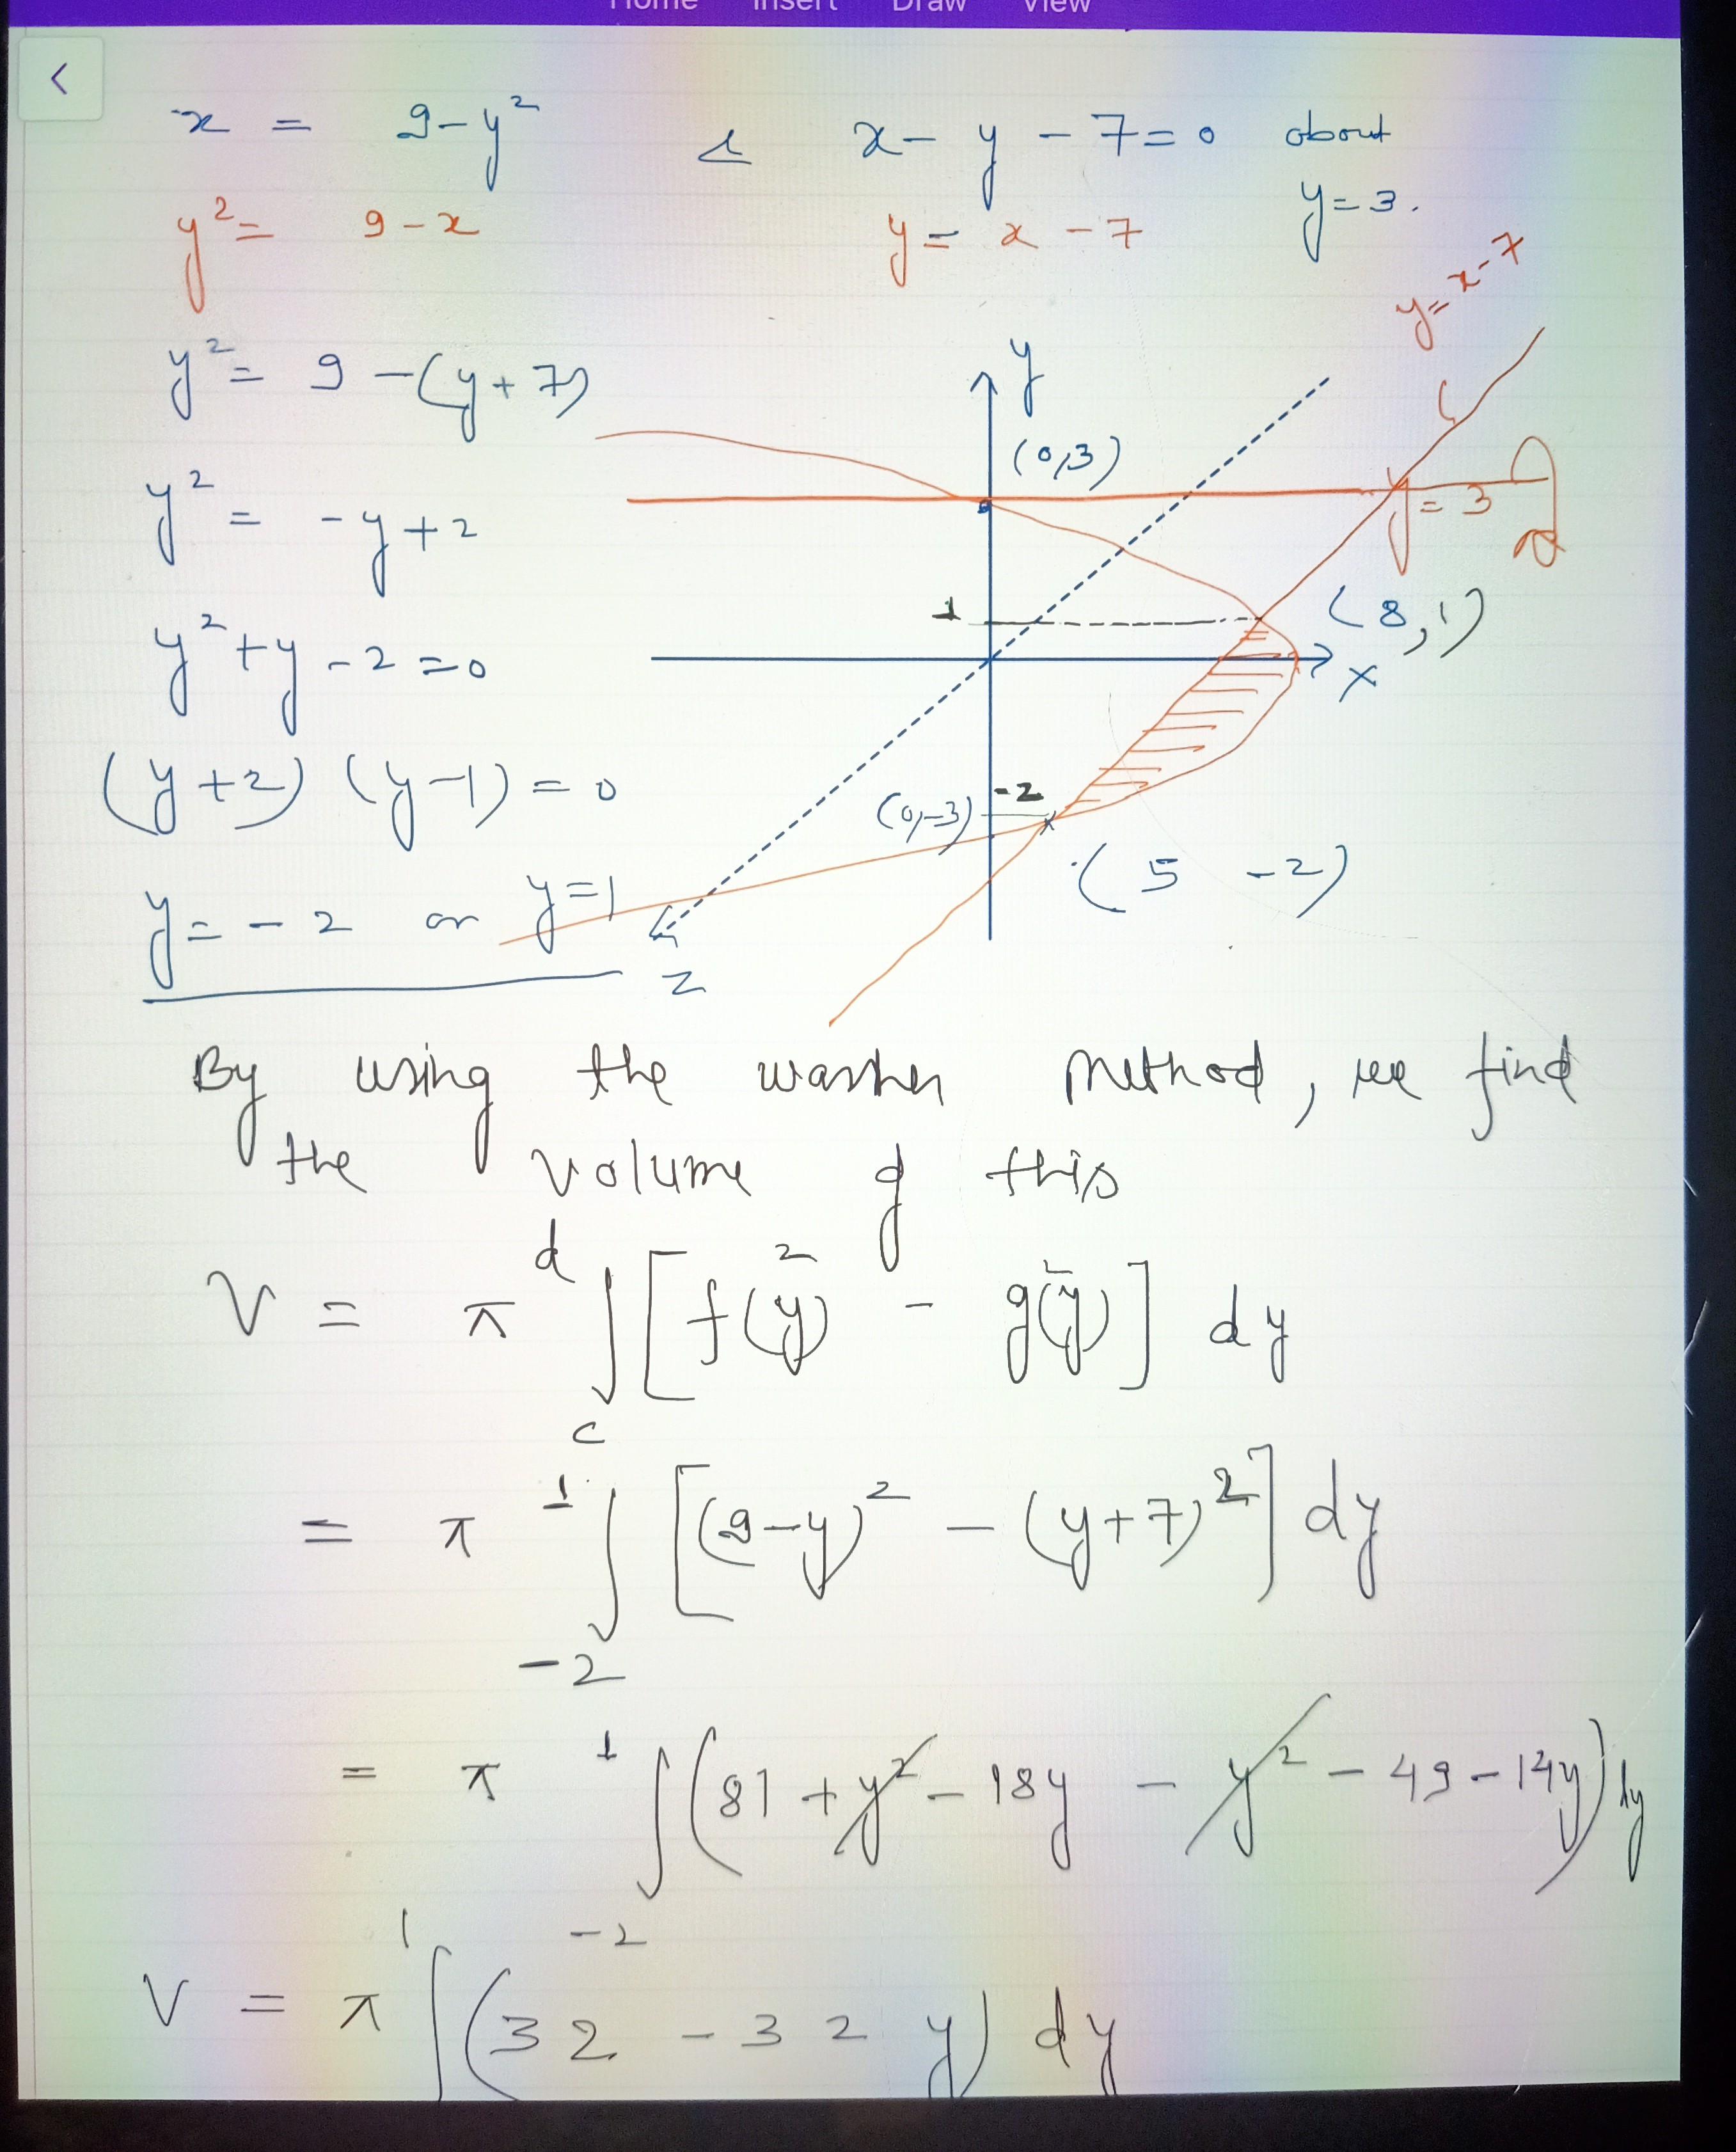 Home Insert Draw View
<
x = 9-y² & x- y - 7=0 about
y=3.
y²= 9-x y= x-7
y=x-7
y²= 9-(y+7)
y
(0,3)
y² = -y+2
y=3
1
(8,1)
y²+y-2=0
x
(y+2) (y-1)=0
-2
(0,-3)
(5 -2)
y=-2 or y=1
z
By using the washer method, we find
the volume of this
V = π ∫ d c [f(y)² - g(y)²] dy
= π ∫ 1 -2 [(9-y)² - (y+7)²] dy
= π ∫ 1 -2 (81+y²-18y - y²-49-14y)dy
V = π ∫ 1 (32 - 32 y) dy